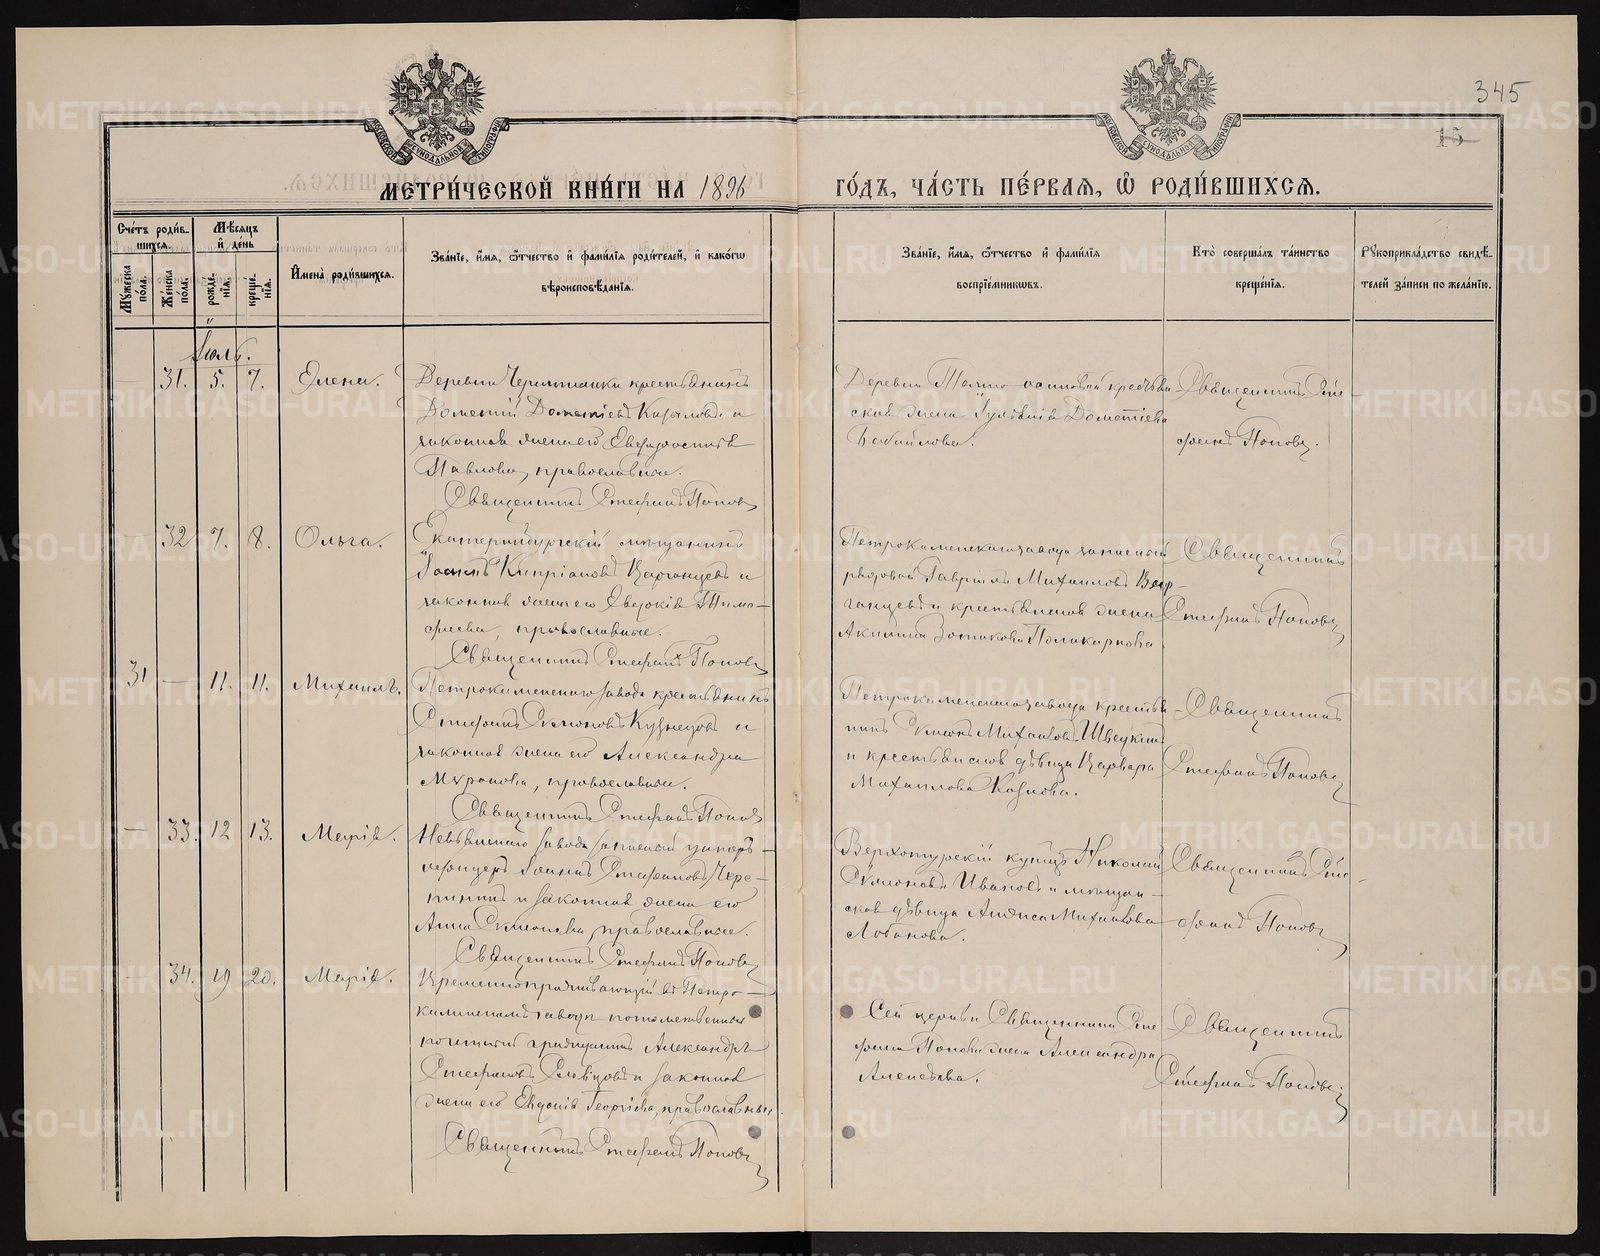 345
15
МЕТРИ́ЧЕСКОЙ КНИ́ГИ НА 1896
ГО́ДЪ, ЧА́СТЬ ПЕ́РВАѦ, Ѡ҆ РОДИ́ВШИХСѦ.
Сче́тъ роди́в-
шихсѧ.
Мѣ́сѧцъ
и҆ де́нь
Мꙋ́жеска по́ла.
Же́нска по́ла.
рожде́-
нїѧ.
креще́-
нїѧ.
И҆мена̀ роди́вшихсѧ.
Зва́нїе, и҆́мѧ, ѻ҆́тчество и҆ фами́лїѧ роди́телей, и҆ како́гѡ
вѣроисповѣ́данїѧ.
Зва́нїе, и҆́мѧ, ѻ҆́тчество и҆ фами́лїѧ
воспрїе́мникѡвъ.
Кто̀ соверша́лъ та́инство
креще́нїѧ.
Рꙋкоприкла́дство свидѣ́-
телей за́писи по жела́нїю.
Іюль.
— 31. 5. 7. Елена.
Деревни Черемшанки крестьянинъ
Дометій Дометіевъ Кирилловъ и
законная жена его
Павлова, православные.
Священникъ Стефанъ Поповъ
Деревни крестьян
ская жена Іуліанія Дометіева
Священникъ Сте-
фанъ Поповъ.
— 32 7. 8. Ольга.
Екатеринбургскій мѣщанинъ
Іоаннъ Кипріановъ Варганцевъ и
законная жена его Евдокія Тимо-
феева, православные.
Священникъ Стефанъ Поповъ
Петрокаменскаго завода запасный
рядовой Гавріилъ Михаиловъ Вар-
ганцевъ и крестьянская жена
Акилина Зотикова Поликарпова.
Священникъ
Стефанъ Поповъ
31 — 11. 11. Михаилъ.
Петрокаменскаго завода крестьянинъ
Стефанъ Симеоновъ Кузнецовъ и
законная жена его Александра
православные.
Священникъ Стефанъ Поповъ
Петрокаменскаго завода крестья-
нинъ Симеонъ Михаиловъ
и крестьянская дѣвица Варвара
Михаилова Козлова.
Священникъ
Стефанъ Поповъ
— 33. 12 13. Марія.
Невьянскаго завода запасный унтеръ-
офицеръ Іоаннъ Стефановъ Чере-
панинъ и законная жена его
Анна Симеонова, православные.
Священникъ Стефанъ Поповъ
Верхотурскій купецъ Николай
Симеоновъ Ивановъ и мѣщан-
ская дѣвица Анфиса Михаилова
Лобанова.
Священникъ Сте-
фанъ Поповъ
— 34. 19 20. Марія.
Временнопроживающій въ Петро-
каменскомъ заводѣ потомственный
почетный гражданинъ Александръ
Стефановъ Словцовъ и законная
жена его Евдокія Георгіева, православные.
Священникъ Стефанъ Поповъ
Сей церкви Священника Сте
фана Попова жена Александра
Алексѣева.
Священникъ
Стефанъ Поповъ.
METRIKI.GASO-URAL.RU